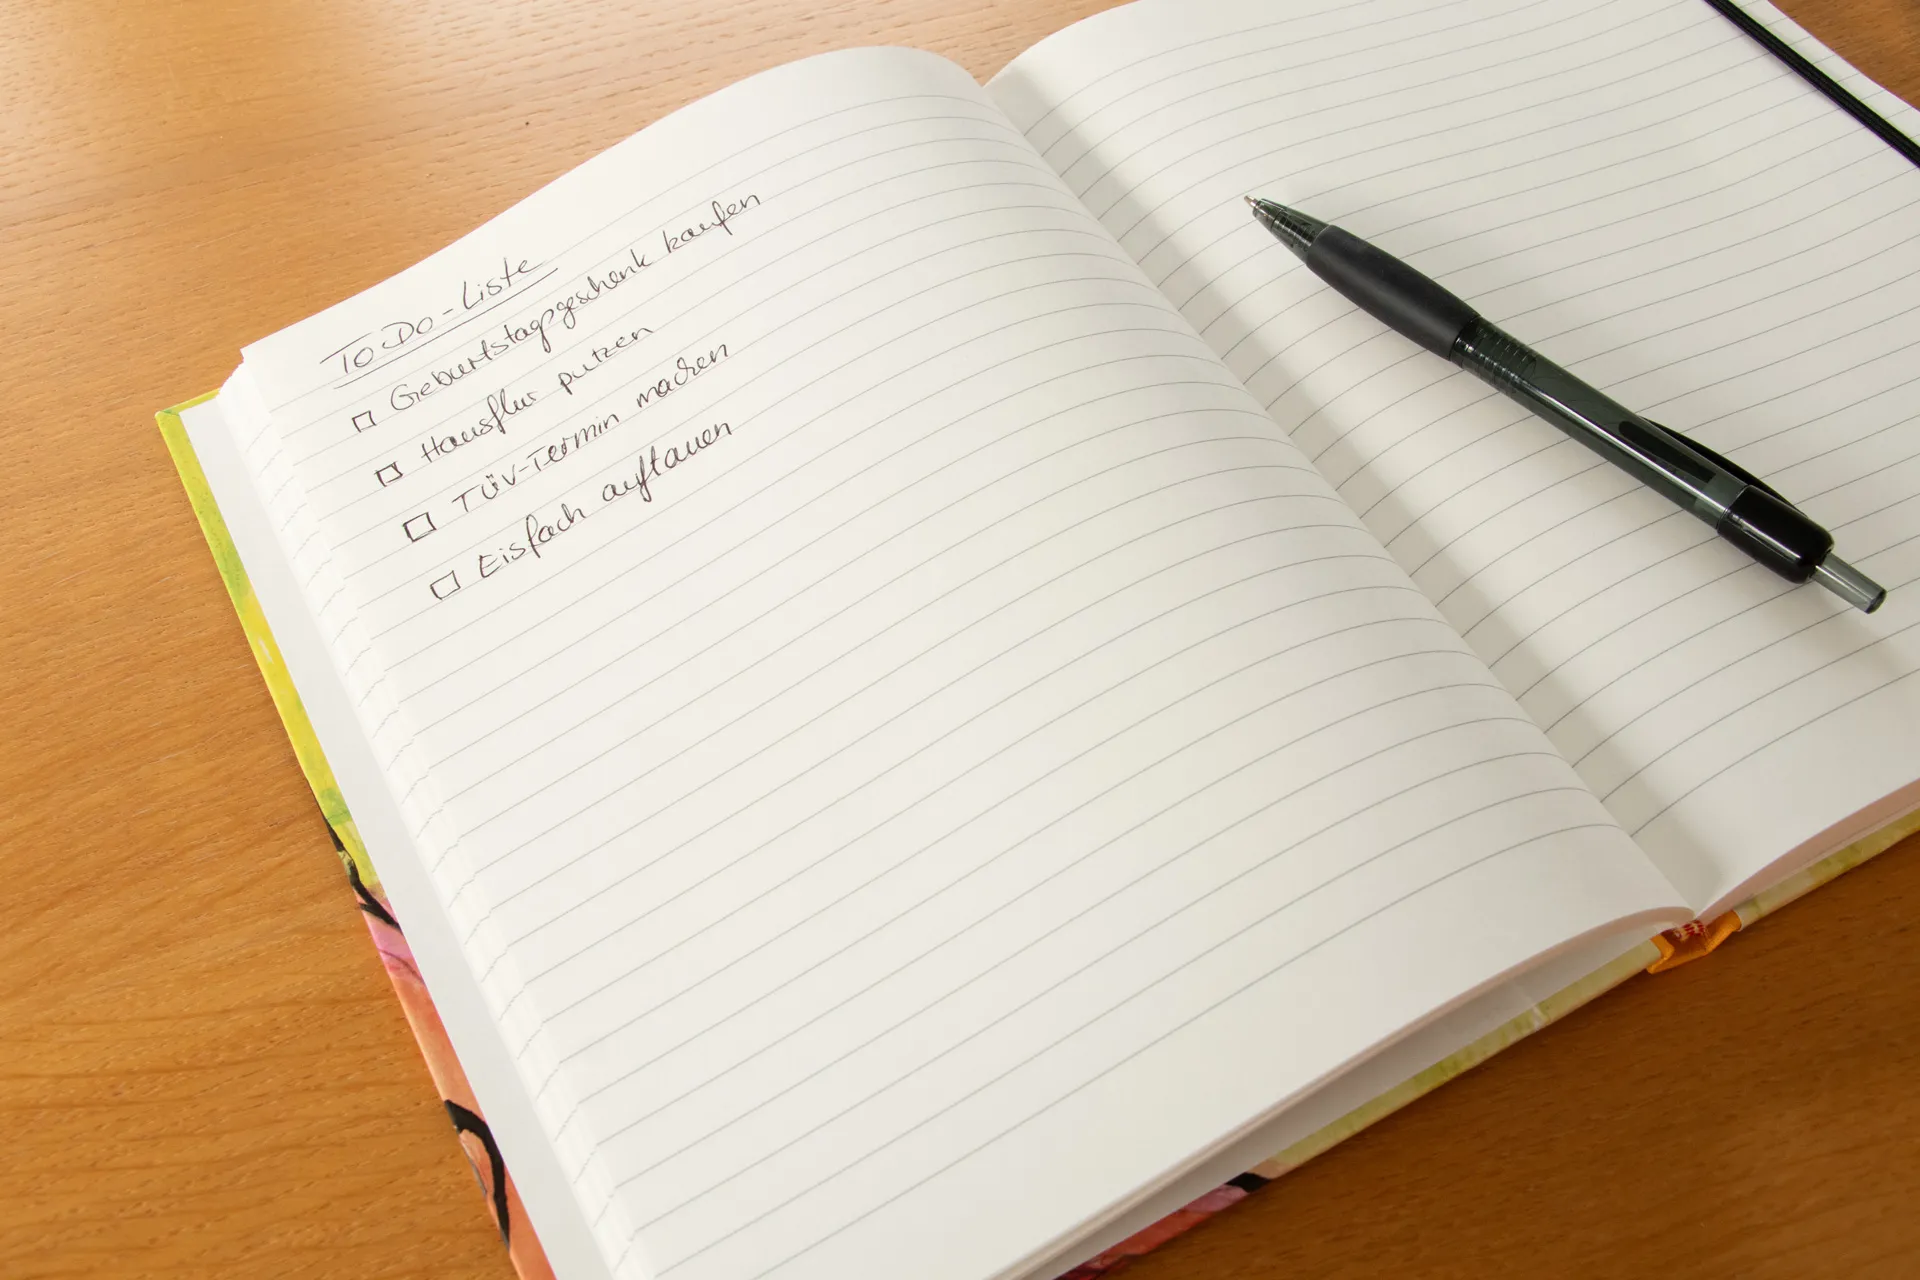 To Do-Liste
Geburtstagsgeschenk kaufen
Hausflur putzen
TÜV-Termin machen
Eisfach auftauen